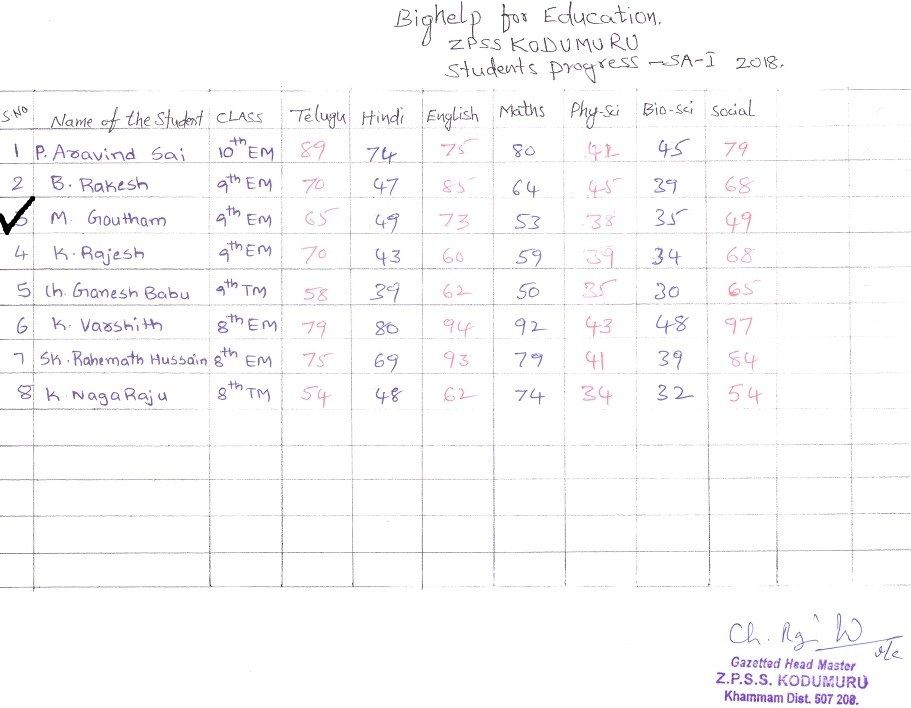 Bighelp for Education.
ZPSS KODUMURU
Students Progress - SA-I 2018.
S.NO Name of the Student CLASS Telugu Hindi English Maths Phy-sci Bio-sci Social
1 P. Aravind Sai 10th EM 89 74 75 80 42 45 79
2 B. Rakesh 9th EM 70 47 85 64 45 39 68
3 M. Goutham 9th EM 65 49 73 53 38 35 49
4 K. Rajesh 9th EM 70 43 60 59 39 34 68
5 Ch. Ganesh Babu 9th TM 58 39 62 50 35 30 65
6 K. Varshith 8th EM 79 80 94 92 43 48 97
7 SK. Rahemath Hussain 8th EM 75 69 93 79 41 39 84
8 K NagaRaju 8th TM 54 48 62 74 34 32 54
Ch.
Gazetted Head Master
Z.P.S.S. KODUMURU
Khammam Dist. 507 208.